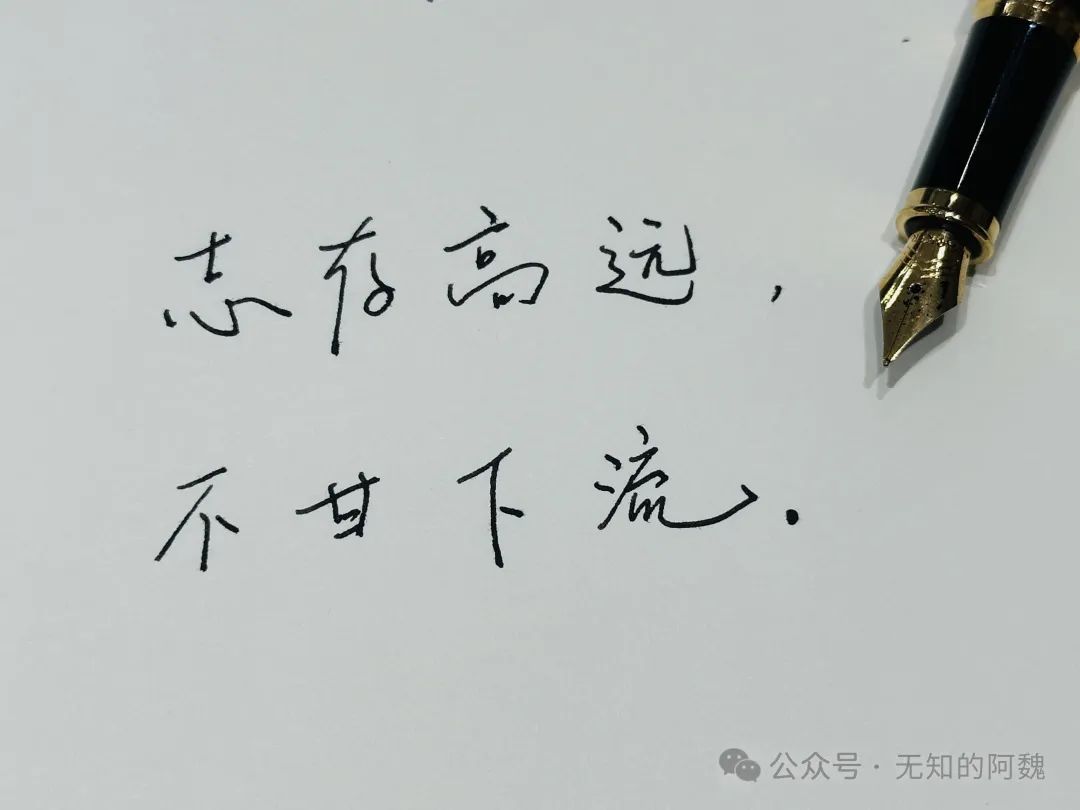 志存高远，
不甘下流.
公众号·无知的阿魏